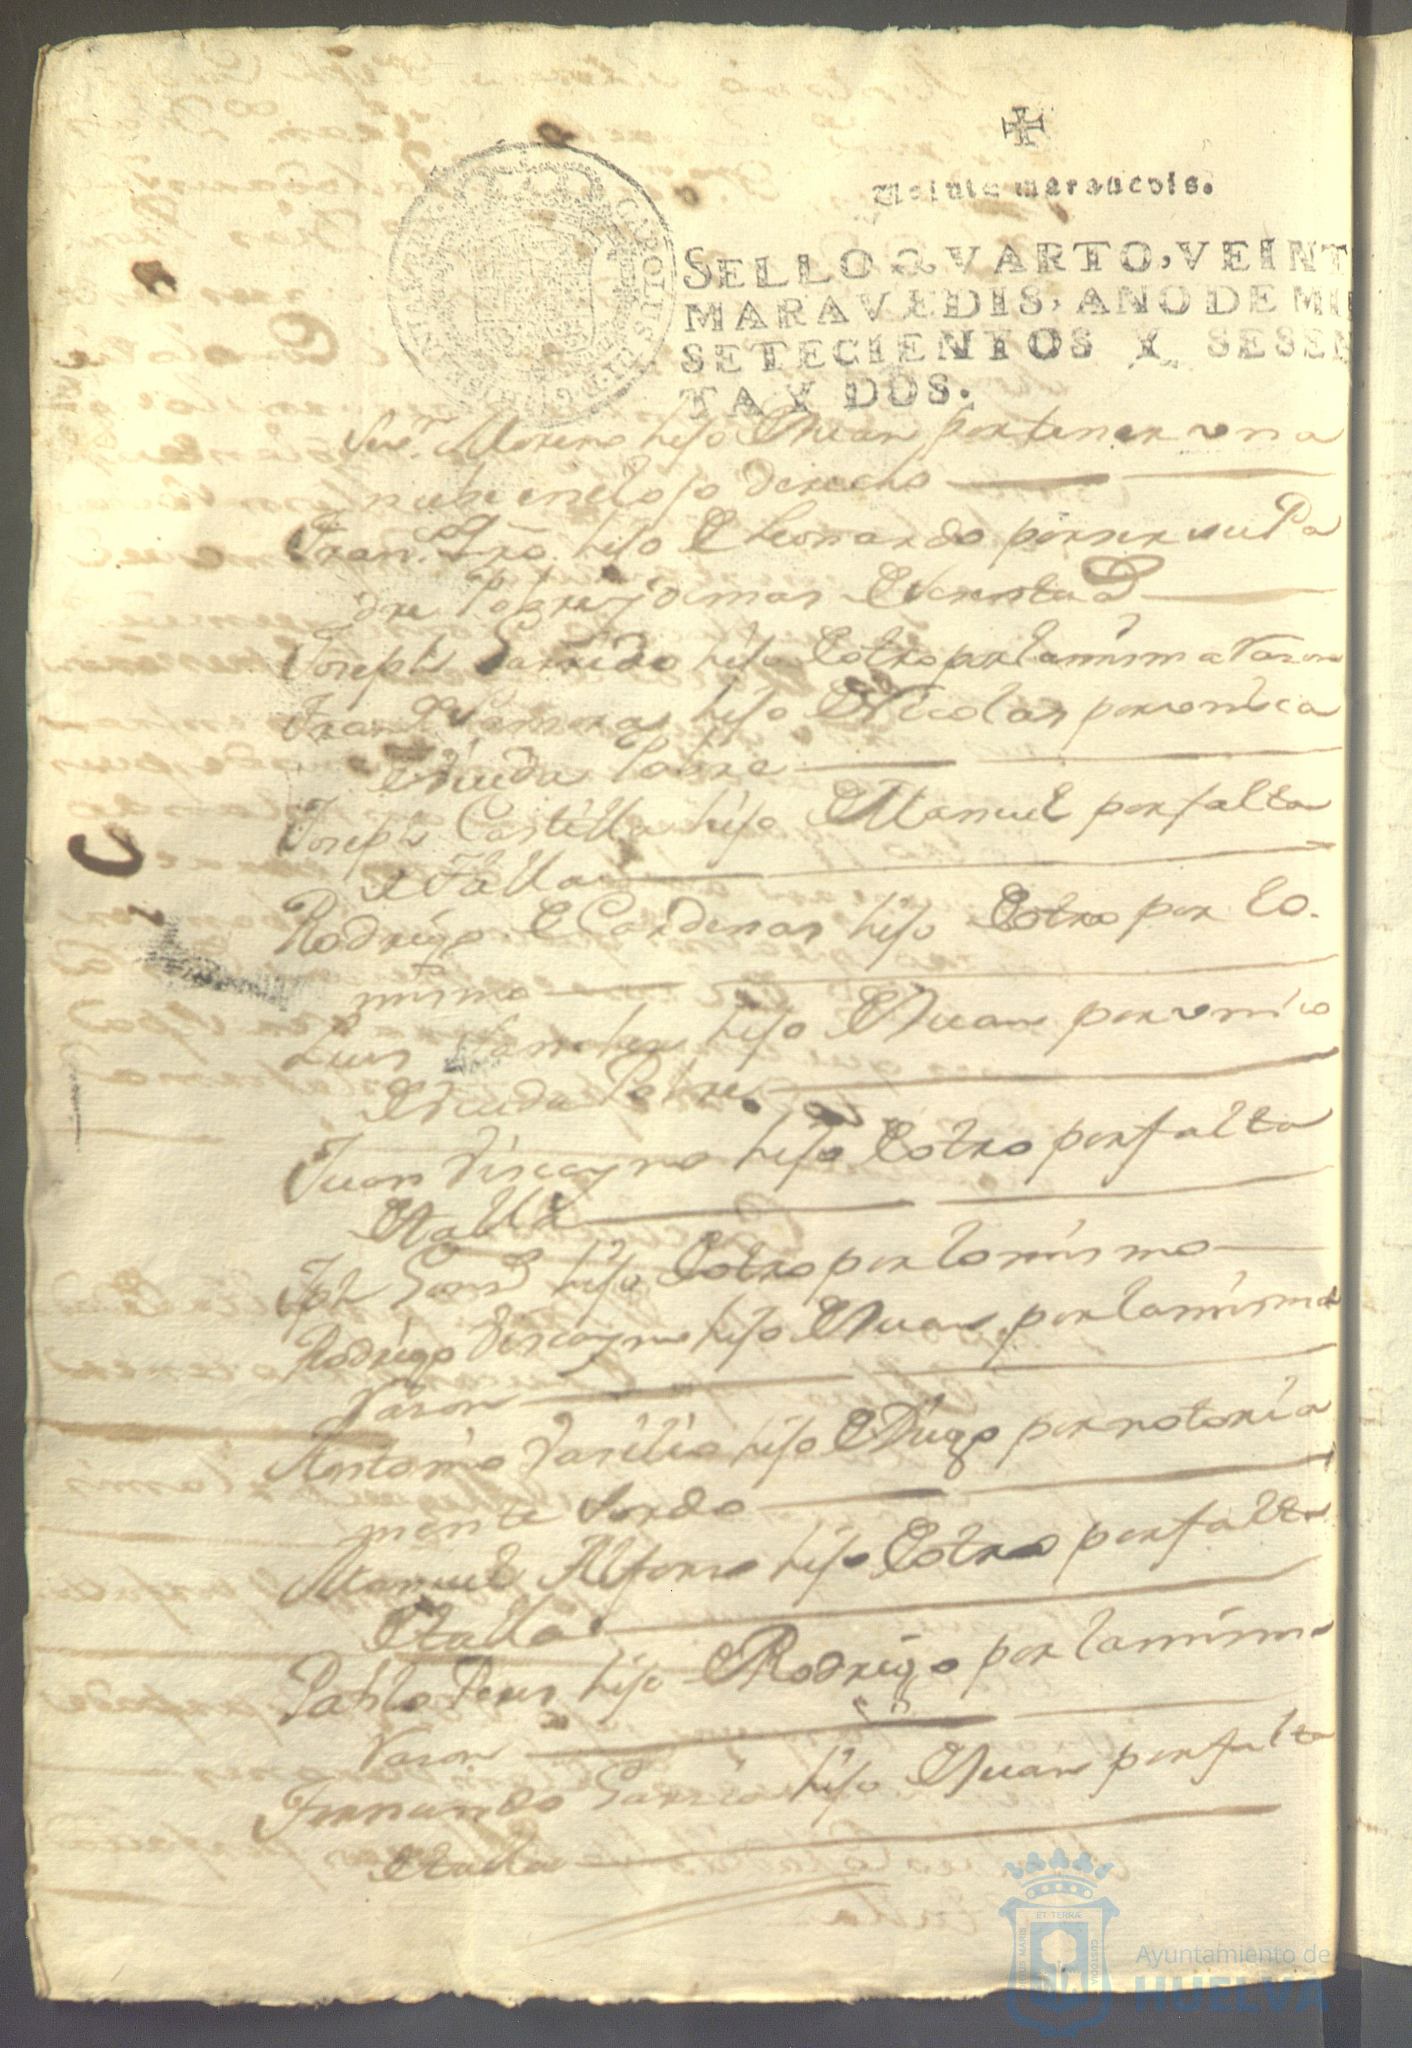 Veinte marauedis.
SELLO QVARTO, VEINT
MARAVEDIS, AÑO DE MIL
SETECIENTOS Y SESEN
TA Y DOS.
Moreno hijo de Juan por tener vna
nube en el ojo derecho
Fran.co hijo de Leonardo por ser su Pa
dre Pobre y de mas de sesenta a
Joseph Garrido hijo de otro por la misma razon
Fran.co hijo de Nicolas por vnico
de viuda Pobre
Joseph Castilla hijo de Manuel por falta
de talla
Rodrigo de Cardenas hijo de otro por lo
mismo
Luis Sanchez hijo de Juan por vnico
de viuda Pobre
Juan Viscayno hijo de otro por falta
de talla
Jph Gonz hijo de otro por lo mismo
Rodrigo Viscayno hijo de Juan por la misma
razon
Antonio Vasilio hijo de Diego por notoria
mente sordo
Manuel Alfonso hijo de otro por falta
de talla
Pablo Peres hijo de Rodrigo por la misma
razon
Fernando Garcia hijo de Juan por falta
de talla
Ayuntamiento de
HUELVA